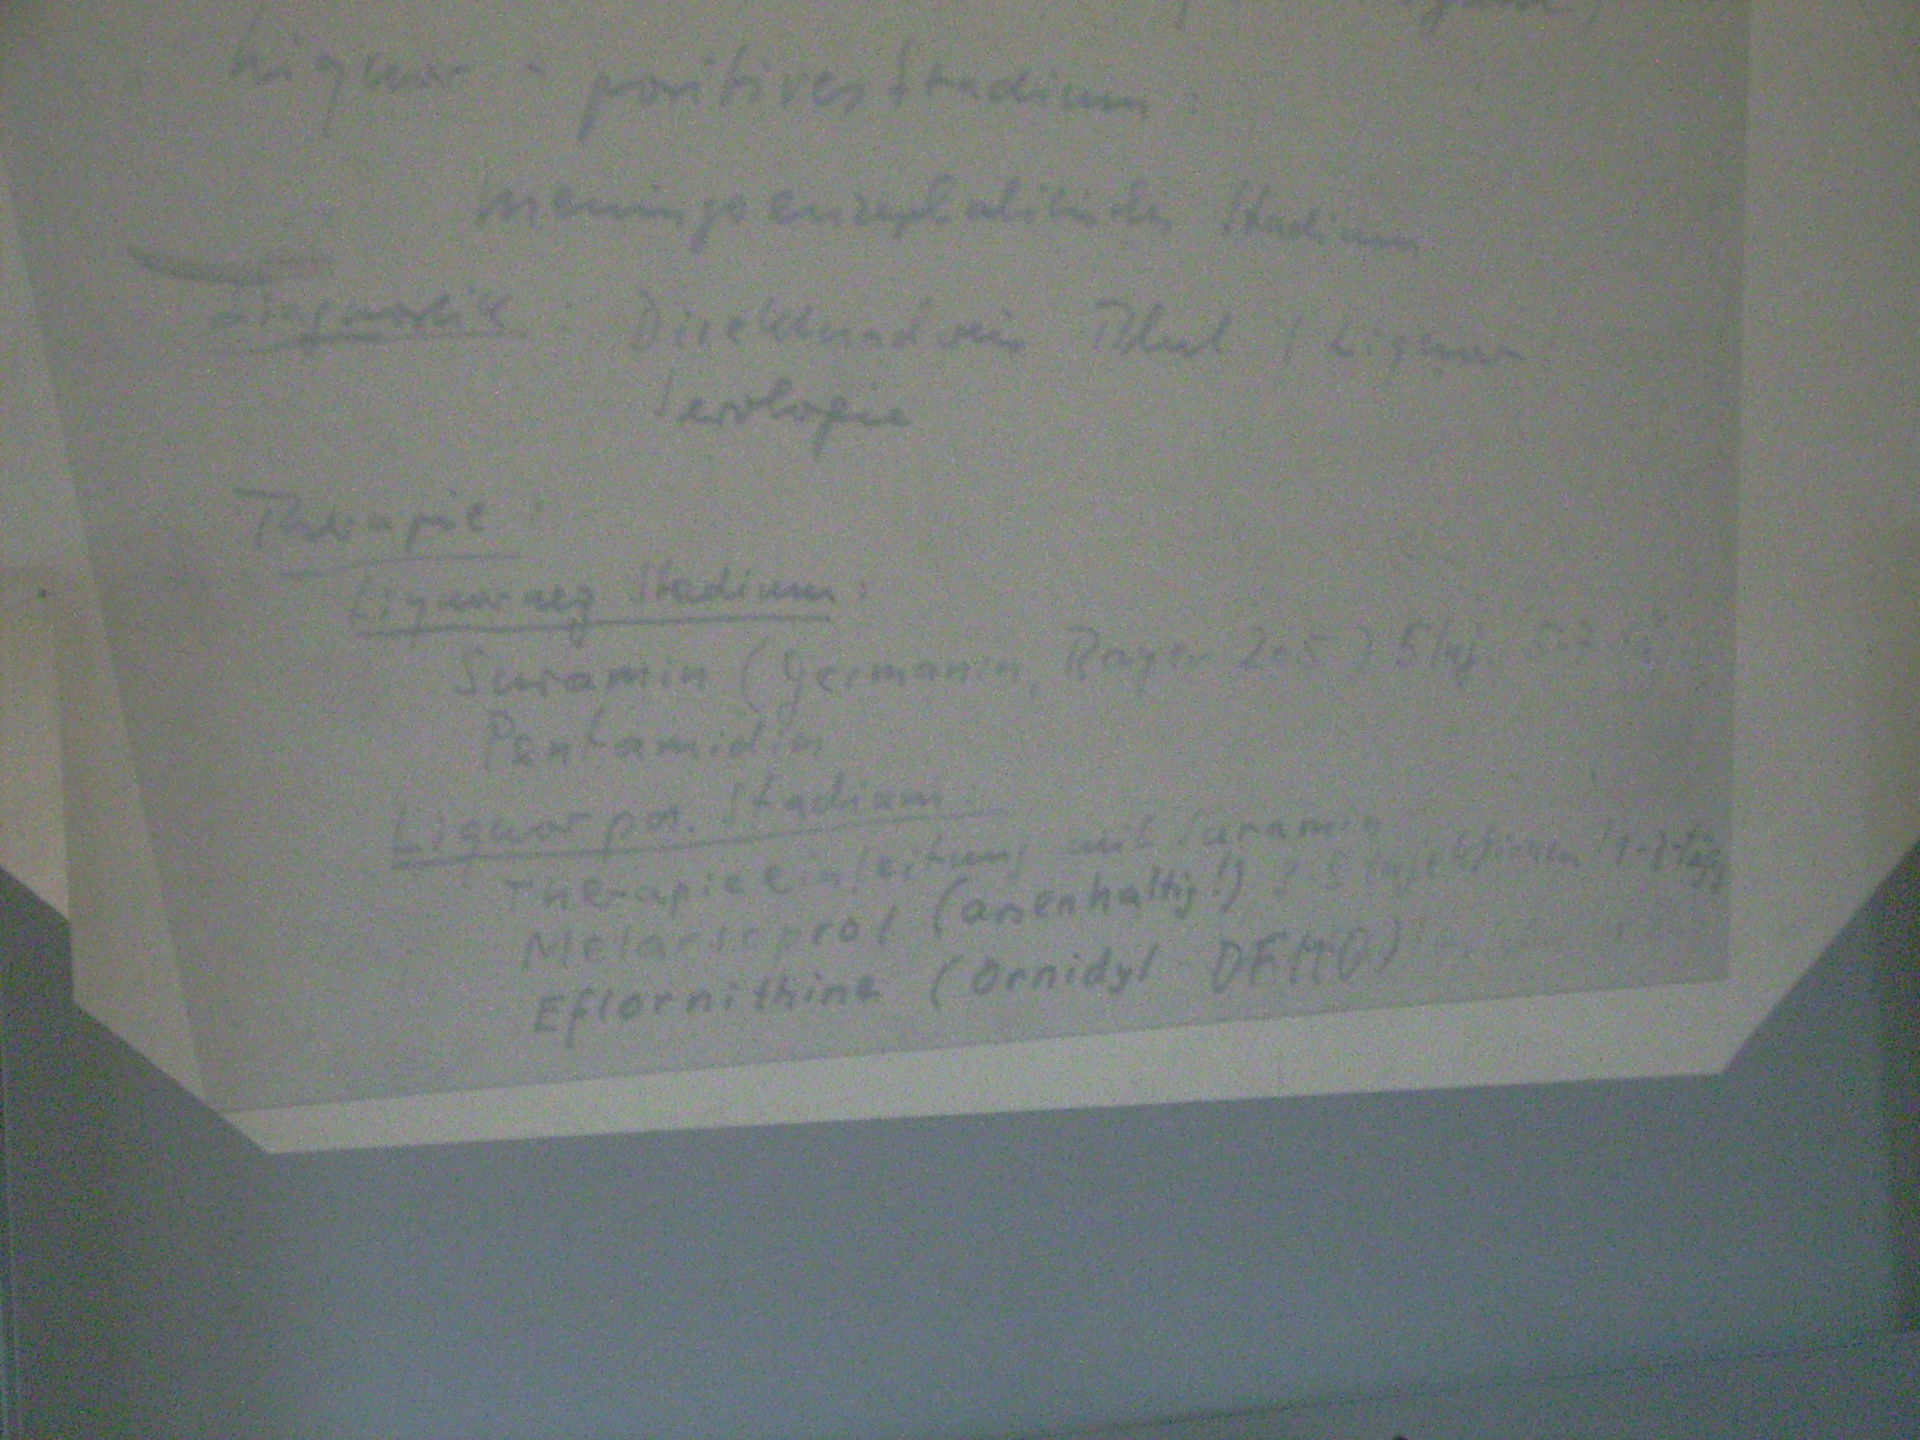 Liquor-positives Stadium:
Meningoenzephalitisches Stadium
Diagnostik: Direktnachweis Blut / Liquor
Serologie
Therapie:
Liquor neg Stadium:
Suramin (Germanin, Bayer 205) 5 Inj. 5-7
Pentamidin
Liquor pos. Stadium:
Therapieeinleitung mit Suramin
Melarsoprol (arsenhaltig!) Injektionen
Eflornithine (Ornidyl DFMO)